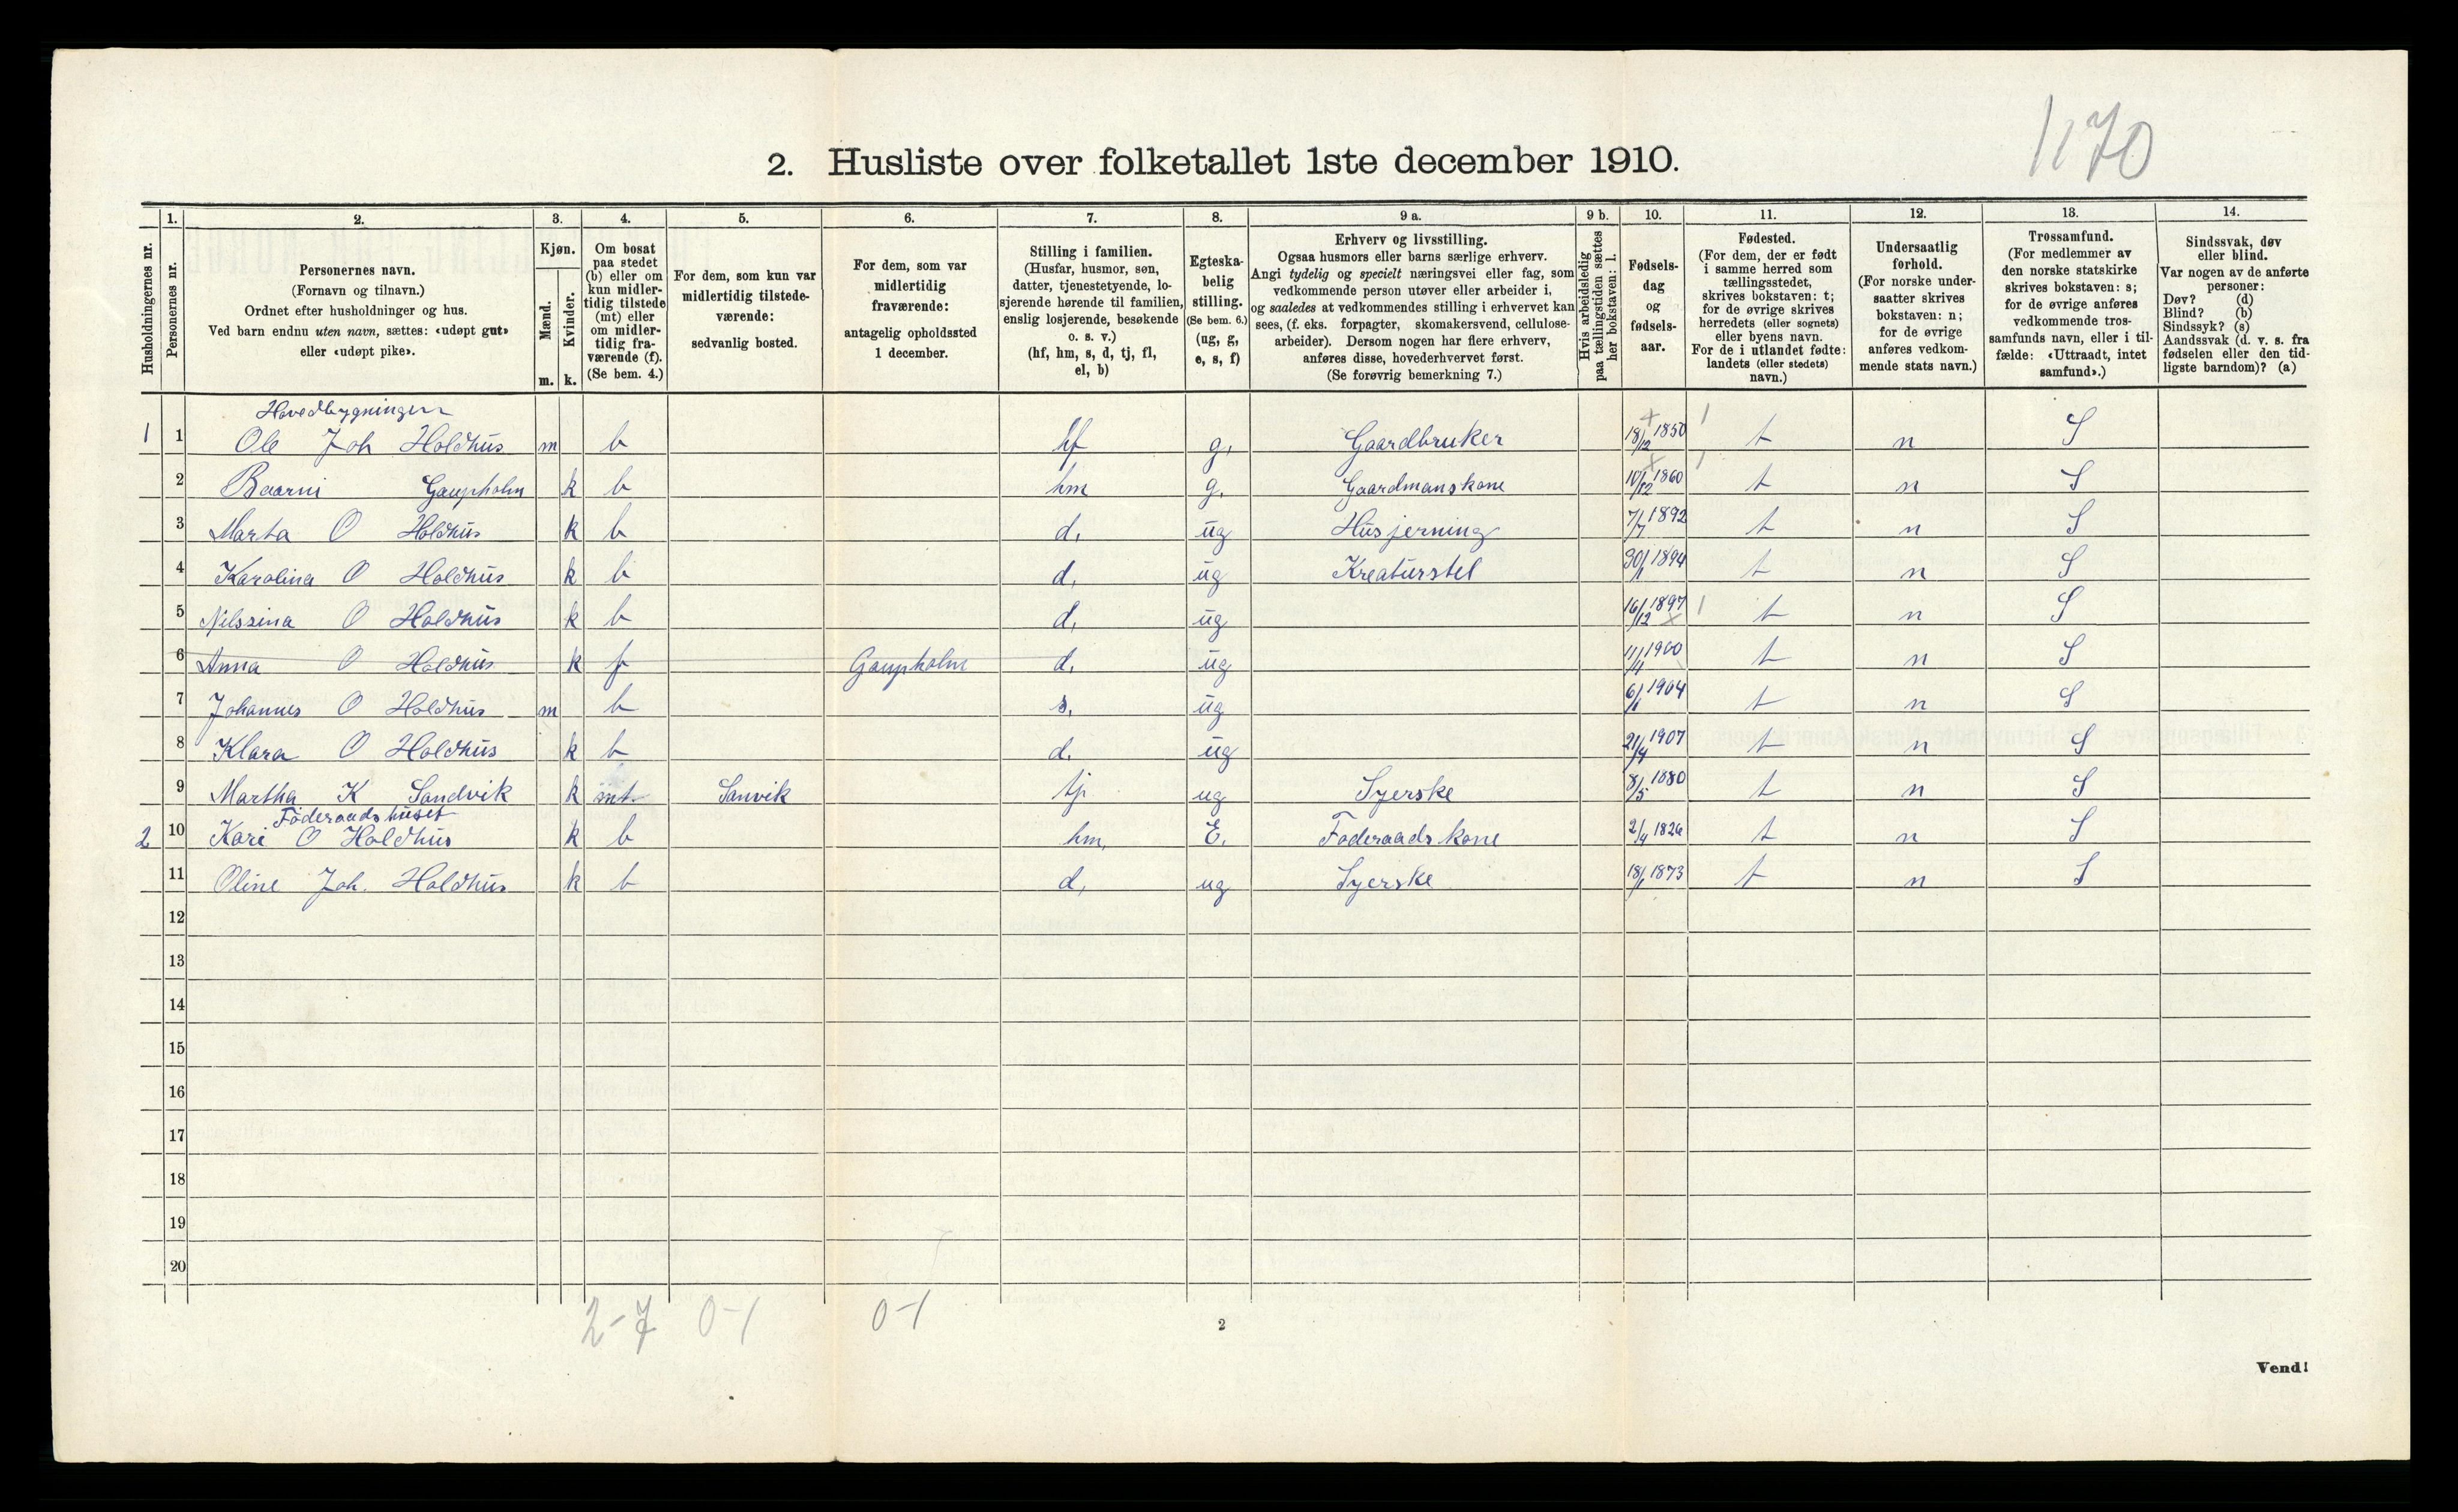 1170
2. Husliste over folketallet 1ste december 1910.
Husholdningernes nr.
1. Personernes nr.
2. Personernes navn.
(Fornavn og tilnavn.)
Ordnet efter husholdninger og hus.
Ved barn endnu uten navn, sættes: «udøpt gut»
eller «udøpt pike».
3. Kjøn.
Mænd. m.
Kvinder. k.
4. Om bosat
paa stedet
(b) eller om
kun midler-
tidig tilstede
(mt) eller
om midler-
tidig fra-
værende (f).
(Se bem. 4.)
5. For dem, som kun var
midlertidig tilstede-
værende:
sedvanlig bosted.
6. For dem, som var
midlertidig
fraværende:
antagelig opholdssted
1 december.
7. Stilling i familien.
(Husfar, husmor, søn,
datter, tjenestetyende, lo-
sjerende hørende til familien,
enslig losjerende, besøkende
o. s. v.)
(hf, hm, s, d, tj, fl,
el, b)
8. Egteska-
belig
stilling.
(Se bem. 6.)
(ug, g,
e, s, f)
9 a. Erhverv og livsstilling.
Ogsaa husmors eller barns særlige erhverv.
Angi tydelig og specielt næringsvei eller fag, som
vedkommende person utøver eller arbeider i,
og saaledes at vedkommendes stilling i erhvervet kan
sees, (f. eks. forpagter, skomakersvend, cellulose-
arbeider). Dersom nogen har flere erhverv,
anføres disse, hovederhvervet først.
(Se forøvrig bemerkning 7.)
9 b. Hvis arbeidsledig
paa tællingstiden sættes
her bokstaven: l.
10. Fødsels-
dag
og
fødsels-
aar.
11. Fødested.
(For dem, der er født
i samme herred som
tællingsstedet,
skrives bokstaven: t;
for de øvrige skrives
herredets (eller sognets)
eller byens navn.
For de i utlandet fødte:
landets (eller stedets)
navn.)
12. Undersaatlig
forhold.
(For norske under-
saatter skrives
bokstaven: n;
for de øvrige
anføres vedkom-
mende stats navn.)
13. Trossamfund.
(For medlemmer av
den norske statskirke
skrives bokstaven: s;
for de øvrige anføres
vedkommende tros-
samfunds navn, eller i til-
fælde: «Uttraadt, intet
samfund».)
14. Sindssvak, døv
eller blind.
Var nogen av de anførte
personer:
Døv? (d)
Blind? (b)
Sindssyk? (s)
Aandssvak (d. v. s. fra
fødselen eller den tid-
ligste barndom)? (a)
Hovedbygningen
1 1 Ole Joh Holdhus m b hf g. Gaardbruker 18/12 1850 t n S
2 Baarni Gaupholm k b hm g. Gaardmanskone 10/12 1860 t n S
3 Marta O Holdhus k b d. ug Husjerning 7/7 1892 t n S
4 Karolina O Holdhus k b d. ug Kreaturstel 30/1 1894 t n S
5 Nilssina O Holdhus k b d. ug 16/12 1897 t n S
6 Anna O Holdhus k f Gaupholm d. ug 11/11 1900 t n S
7 Johannes O Holdhus m b s. ug 6/1 1904 t n S
8 Klara O Holdhus k b d. ug 21/4 1907 t n S
9 Martha K Sandvik k mt Sanvik tj ug Syerske 8/5 1880 t n S
Föderaadshuset
2 10 Kari O Holdhus k b hm. E. Foderaadskone 2/4 1826 t n S
11 Oline Joh. Holdhus k b d. ug Syerske 18/1 1873 t n S
12
13
14
15
16
17
18
19
20
2-7 0-1 0-1
2
Vend!